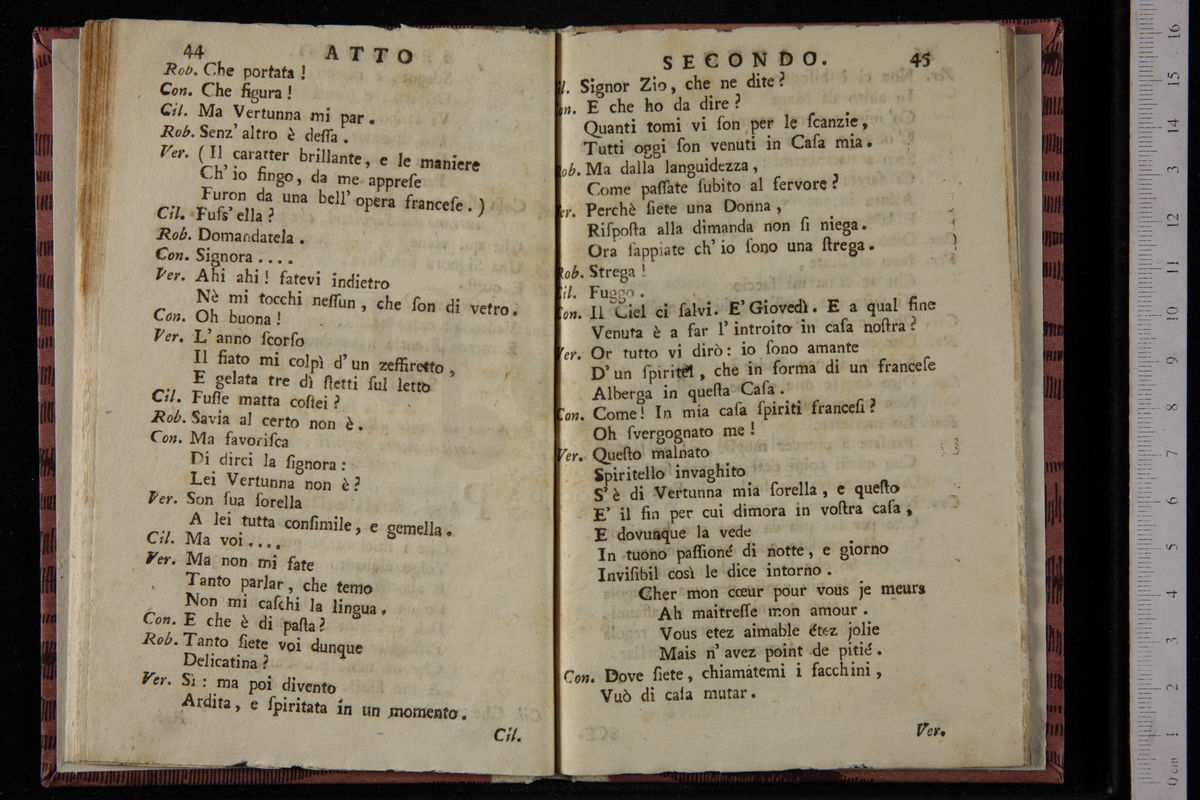 44 ATTO
Rob. Che portata !
Con. Che figura !
Cil. Ma Vertunna mi par .
Rob. Senz' altro è deſſa .
Ver. ( Il caratter brillante , e le maniere
Ch' io fingo , da me appreſe
Furon da una bell' opera franceſe . )
Cil. Fuſs' ella ?
Rob. Domandatela .
Con. Signora ....
Ver. Ahi ahi ! fatevi indietro
Nè mi tocchi neſſun , che ſon di vetro .
Con. Oh buona !
Ver. L' anno ſcorſo
Il fiato mi colpì d' un zeffiretto ,
E gelata tre dì ſtetti ſul letto
Cil. Fuſſe matta coſtei ?
Rob. Savia al certo non è .
Con. Ma favoriſca
Di dirci la ſignora :
Lei Vertunna non è ?
Ver. Son ſua ſorella
A lei tutta conſimile , e gemella .
Cil. Ma voi ....
Ver. Ma non mi fate
Tanto parlar , che temo
Non mi caſchi la lingua .
Con. E che è di paſta ?
Rob. Tanto ſiete voi dunque
Delicatina ?
Ver. Sì : ma poi divento
Ardita , e ſpiritata in un momento .
Cil.
SECONDO. 45
il. Signor Zio , che ne dite ?
on. E che ho da dire ?
Quanti tomi vi ſon per le ſcanzie ,
Tutti oggi ſon venuti in Caſa mia .
Rob. Ma dalla languidezza ,
Come paſſate ſubito al fervore ?
er. Perchè ſiete una Donna ,
Riſpoſta alla dimanda non ſi niega .
Ora ſappiate ch' io ſono una ſtrega .
Rob. Strega !
Cil. Fuggo .
Con. Il Ciel ci ſalvi . E' Giovedì . E a qual fine
Venuta è a far l' introito in caſa noſtra ?
Ver. Or tutto vi dirò : io ſono amante
D' un ſpiritel , che in forma di un franceſe
Alberga in queſta Caſa .
Con. Come ! In mia caſa ſpiriti franceſi ?
Oh ſvergognato me !
Ver. Queſto malnato
Spiritello invaghito
S' è di Vertunna mia ſorella , e queſto
E' il fin per cui dimora in voſtra caſa ,
E dovunque la vede
In tuono paſſioné di notte , e giorno
Inviſibil così le dice intorno .
Cher mon cœur pour vous je meurs
Ah maitreſſe mon amour .
Vous etez aimable étez jolie
Mais n' avez point de pitié .
Con. Dove ſiete , chiamatemi i facchini ,
Vuò di caſa mutar .
Ver.